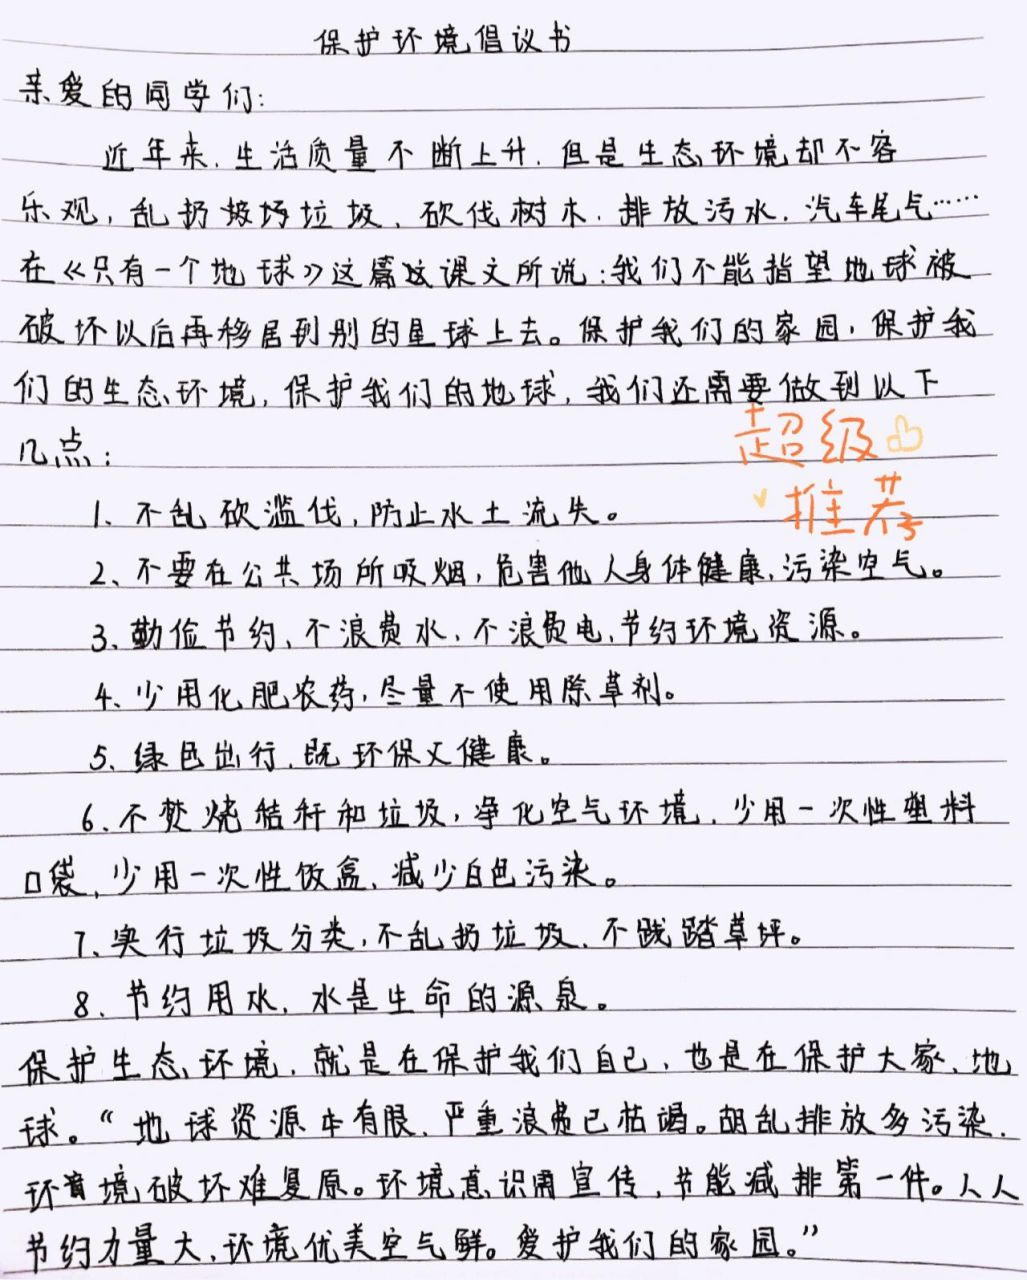 保护环境倡议书
亲爱的同学们:
近年来,生活质量不断上升,但是生态环境却不容
乐观,乱扔垃圾,砍伐树木,排放污水,汽车尾气……
在《只有一个地球》这篇课文所说:我们不能指望地球被
破坏以后再移居到别的星球上去。保护我们的家园,保护我
们的生态环境,保护我们的地球,我们还需要做到以下
几点:
超级
推荐
1、不乱砍滥伐,防止水土流失。
2、不要在公共场所吸烟,危害他人身体健康,污染空气。
3、勤俭节约,不浪费水,不浪费电,节约环境资源。
4、少用化肥农药,尽量不使用除草剂。
5、绿色出行,既环保又健康。
6、不焚烧秸秆和垃圾,净化空气环境,少用一次性塑料
口袋,少用一次性饭盒,减少白色污染。
7、实行垃圾分类,不乱扔垃圾,不践踏草坪。
8、节约用水,水是生命的源泉。
保护生态环境,就是在保护我们自己,也是在保护大家、地
球。“地球资源本有限,严重浪费已枯竭。胡乱排放多污染,
环境破坏难复原。环境意识需宣传,节能减排第一件。人人
节约力量大,环境优美空气鲜。爱护我们的家园。”